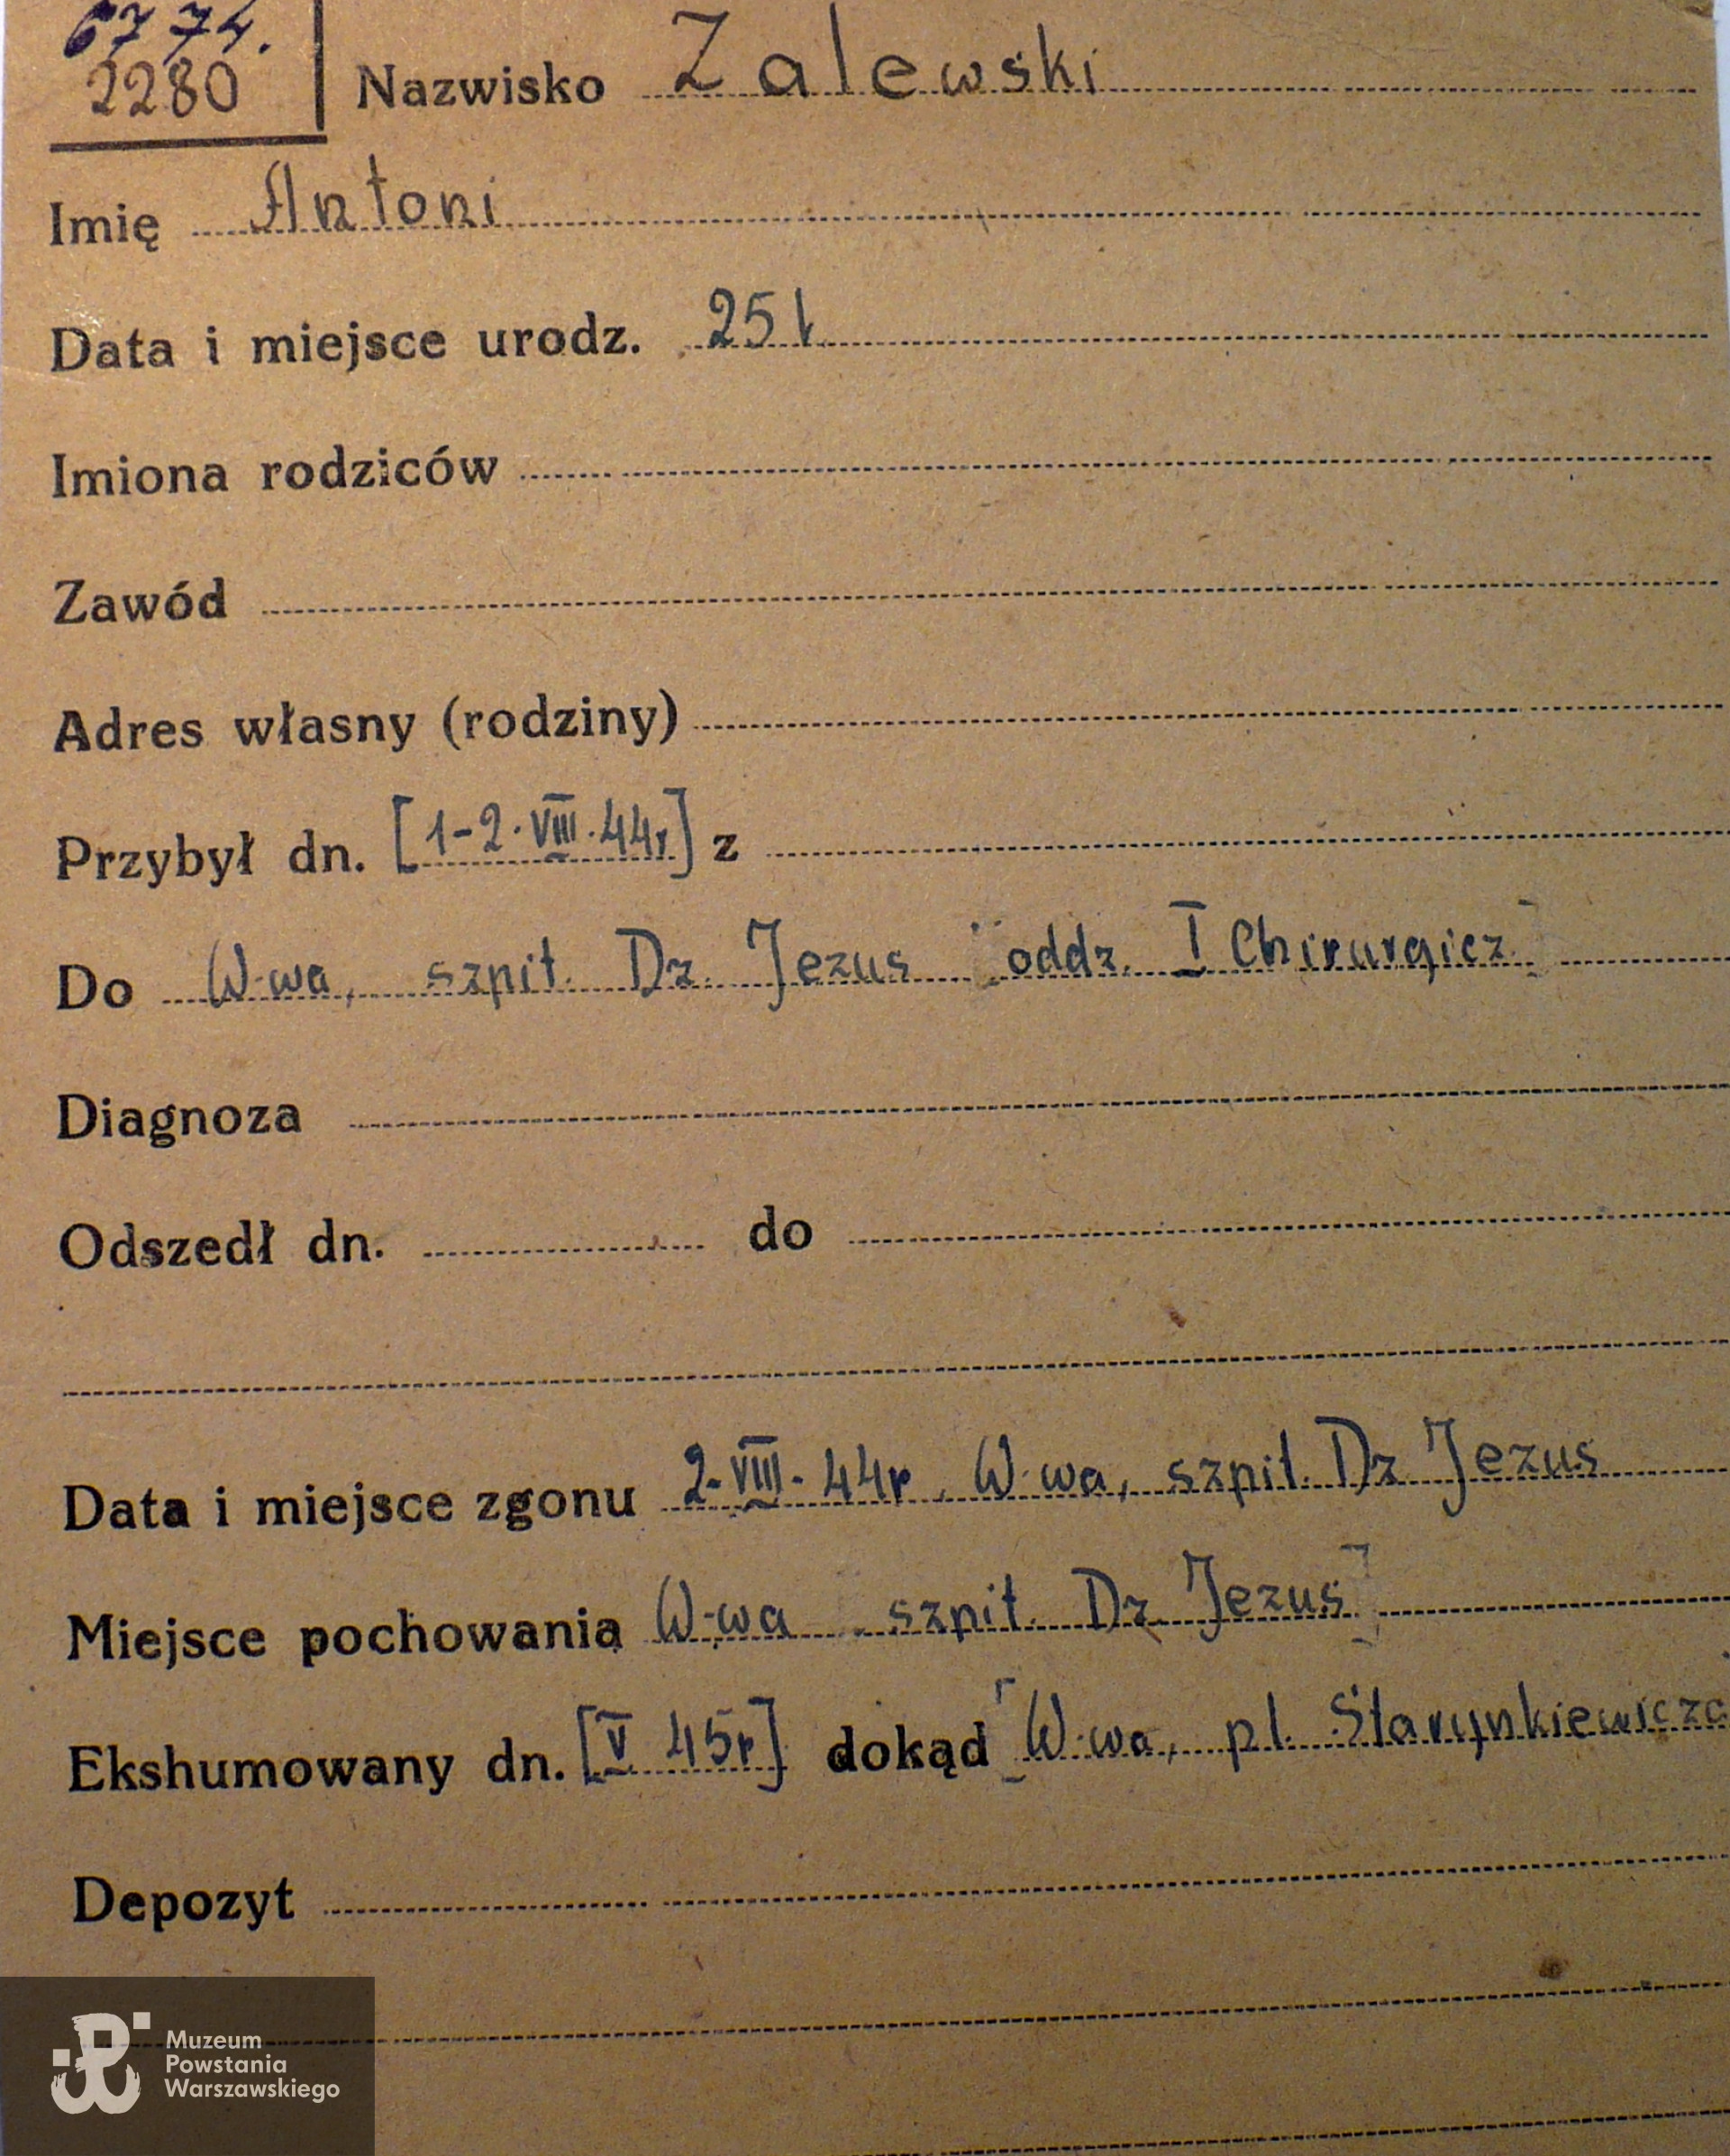 6774.
2280
Nazwisko Zalewski
Imię Antoni
Data i miejsce urodz. 25 l.
Imiona rodziców
Zawód
Adres własny (rodziny)
Przybył dn. [1-2.VIII.44r] z
Do W-wa, szpit. Dz. Jezus [oddz. I Chirurgicz.]
Diagnoza
Odszedł dn. do
Data i miejsce zgonu 2-VIII-44r, W-wa, szpit. Dz Jezus
Miejsce pochowania W-wa szpit. Dz. Jezus]
Ekshumowany dn. [V 45r] dokąd [W-wa, pl. Starynkiewicza
Depozyt
Muzeum
Powstania
Warszawskiego